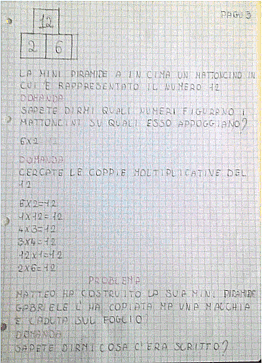 PAG. 3
12
2 6
LA MINI PIRAMIDE A IN CIMA UN MATTONCINO IN
CUI È RAPPRESENTATO IL NUMERO 12
DOMANDA
SAPETE DIRMI QUALI NUMERI FIGURANO I
MATTONCINI SU QUALI ESSO APPOGGIANO?
6X2 12
DOMANDA
CERCATE LE COPPIE MOLTIPLICATIVE DEL
12
6X2=12
1X12=12
4X3=12
3X4=12
12X1=12
2X6=12
PROBLEMA
MATTEO HA COSTRUITO LA SUA MINI PIRAMIDE
GABRIELE L'HA COPIATA MA UNA MACCHIA
È CADUTA SUL FOGLIO
DOMANDA
SAPETE DIRMI COSA C'ERA SCRITTO?